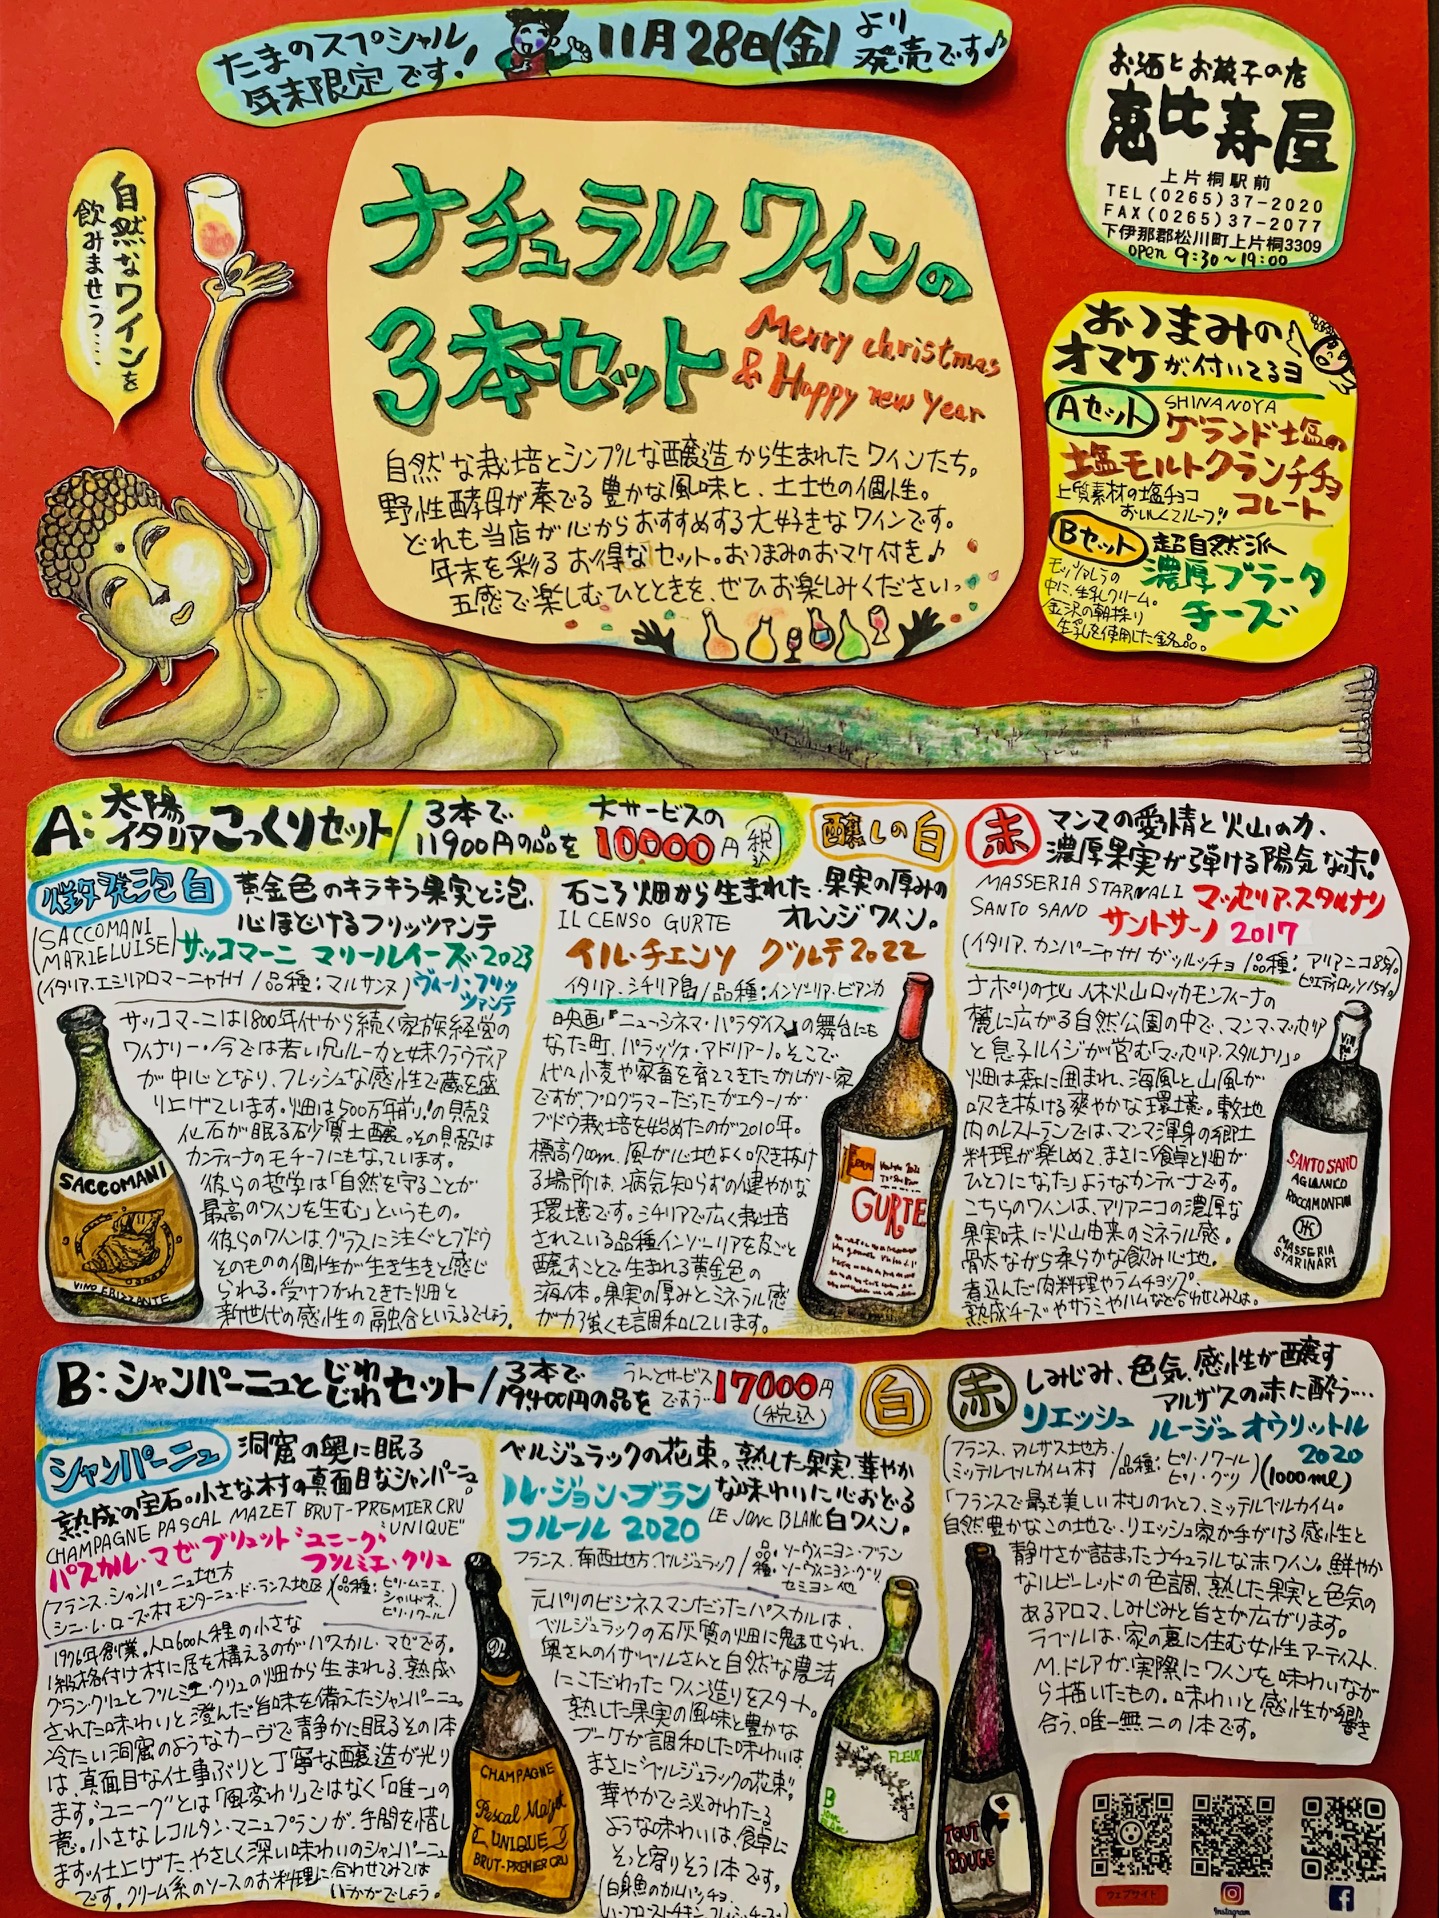 たまのスペシャル
年末限定です!
11月28日(金)
より
発売です♪
お酒とお菓子の店
恵比寿屋
上片桐駅前
TEL(0265)37-2020
FAX(0265)37-2077
下伊那郡松川町上片桐3309
open 9:30~19:00
自然なワインを
飲みませう……
ナチュラルワインの
3本セット
Merry christmas
& Happy new year
自然な栽培とシンプルな醸造から生まれたワインたち。
野性酵母が奏でる豊かな風味と、土土地の個性。
どれも当店が心からおすすめする大好きなワインです。
年末を彩るお得なセット。おつまみのおマケ付き♪
五感で楽しむひとときを、ぜひお楽しみくださいっ
おつまみの
オマケが付いてるヨ
Aセット
SHINANOYA
グランド塩の
塩モルトクランチチョ
コレート
上質素材の塩チョコ
おいしくてループ!
Bセット
超自然派
濃厚ブラータ
チーズ
モッツァレラの
中に、生乳クリーム。
金沢の朝採り
生乳を使用した銘品。
A:太陽
イタリアこっくりセット/
3本で
11900円の品を
大サービスの
10000円(税込)
微発泡白
黄金色のキラキラ果実と泡、
心ほどけるフリッツァンテ
(SACCOMANI
MARIELUISE)
サッコマーニ マリールイーズ2023
(イタリア.エミリアロマーニャ州/品種:マルサンヌ)
ヴィーノ・フリッ
ツァンテ
サッコマーニは1800年代から続く家族経営の
ワイナリー・今では若い兄ルーカと妹クラウディア
が中心となり、フレッシュな感性で蔵を盛
り上げています。畑は500万年前!の貝殻
化石が眠る砂質土壌。その貝殻は
カンティーナのモチーフにもなっています。
彼らの哲学は「自然を守ることが
最高のワインを生む」というもの。
彼らのワインは、グラスに注ぐとブドウ
そのものの個性が生き生きと感じ
られる。受けつがれてきた畑と
新世代の感性の融合といえるでしょう。
SACCOMANI
VINO FRIZZANTE
醸しの白
石ころ畑から生まれた、果実の厚みの
オレンジワイン。
IL CENSO GURTE
イル・チェンソ グルテ2022
イタリア.シチリア島/品種:インソーリア・ビアンカ
映画『ニューシネマ・パラダイス』の舞台にも
なった町、パラッツォ・アドリアーノ。そこで
代々小麦や家畜を育ててきたガルガノ家
ですが、プログラマーだったガエターノが
ブドウ栽培を始めたのが2010年。
標高700m、風が心地よく吹き抜け
る場所は、病気知らずの健やかな
環境です。シチリアで広く栽培
されている品種インゾーリアを皮ごと
醸すことで生まれる黄金色の
液体。果実の厚みとミネラル感
が力強くも調和しています。
GURTE
赤
マンマの愛情と火山の力、
濃厚果実が弾ける陽気な赤!
MASSERIA STARNALI
SANTO SANO
マッセリア.スタルナリ
サントサーノ 2017
(イタリア.カンパーニャ州ガッルッチョ/品種:アリアニコ85%
ピエディロッソ15%)
ナポリの北、休火山ロッカモンフィーナの
麓に広がる自然公園の中で、マンマ・マッセリア
と息子ルイジが営む「マッセリア・スタルナリ」。
畑は森に囲まれ、海風と山風が
吹き抜ける爽やかな環境。敷地
内のレストランでは、マンマ渾身の郷土
料理が楽しめて、まさに「食卓と畑が
ひとつになった」ようなカンティーナです。
こちらのワインは、アリアニコの濃厚な
果実味に火山由来のミネラル感。
骨太ながら柔らかな飲み心地。
煮込んだ肉料理やラムチョップ、
熟成チーズやサラミやハムなど合わせてみては。
SANTO SANO
AGLIANICO
ROCCAMONFINA
MASSERIA
STARNARI
B:シャンパーニュと じわじわセット/
3本で
19,400円の品を
うんとサービス
ですう…
17000円
(税込)
シャンパーニュ
洞窟の奥に眠る
熟成の宝石。小さな村の真面目なシャンパーニュ
CHAMPAGNE PASCAL MAZET BRUT-PREMIER CRU
"UNIQUE"
パスカル・マゼ ブリュット "ユニーク"
プルミエ・クリュ
(フランス・シャンパーニュ地方
シニ・レ・ローズ村 モンターニュ・ド・ランス地区)
(品種:ピノ・ムニエ、
シャルドネ、
ピノ・ノワール)
1996年創業。人口600人程の小さな
1級格付け村に居を構えるのがパスカル・マゼです。
グランクリュとプルミエ・クリュの畑から生まれる、熟成
された味わいと澄んだ旨味を備えたシャンパーニュ。
冷たい洞窟のようなカーヴで青静かに眠るその1本
は、真面目な仕事ぶりと丁寧な醸造が光り
ます。"ユニーク"とは「風変わり」ではなく「唯一」の
意。小さなレコルタン・マニュプランが、手間を惜し
まず仕上げた、やさしく深い味わいのシャンパーニュ
です。クリーム系のソースのお料理に合わせてみては
いかがでしょう。
CHAMPAGNE
Pascal Mazet
UNIQUE
BRUT-PREMIER CRU
白
ベルジュラックの花束。熟した果実、華やか
な味わいに心おどる
白ワイン。
ル・ジョン・ブラン
コルール 2020
LE JONC BLANC
フランス.南西地方ベルジュラック/
品種:ソーヴィニヨン・ブラン
・ソーヴィニヨン・グリ、
セミヨン他
元パリのビジネスマンだったパスカルは、
ベルジュラックの石灰質の畑に魅せられ、
奥さんのイザベルさんと自然な農法
にこだわったワイン造りをスタート。
熟した果実の風味と豊かな
ブーケが調和した味わいは、
まさに"ベルジュラックの花束"。
華やかで泌みわたる
ような味わいは、食卓に
そっと寄りそう1本です。
(白身魚のカルパッチョ、
FLEUR
B
赤
しみじみ、色気、感性が醸す
アルザスの赤に酔う…
リエッシュ ルージュ オウリットル
2020
(1000ml)
(フランス、アルザス地方.
ミッテルベルカイム村/品種:ピノ・ノワール
ピノ・グリ)
「フランスで最も美しい村」のひとつ、ミッテルベルカイム。
自然豊かなこの地で、リエッシュ家が手がける感性と
静けさが詰まったナチュラルな赤ワイン。鮮やか
なルビーレッドの色調、熟した果実と色気の
あるアロマ、しみじみと旨さが広がります。
ラベルは、家の裏に住む女性アーティスト、
M.ドレアが、実際にワインを味わいなが
ら描いたもの。味わいと感性が響き
合う、唯一無二の1本です。
TOUT
ROUGE
ウェブサイト
Instagram